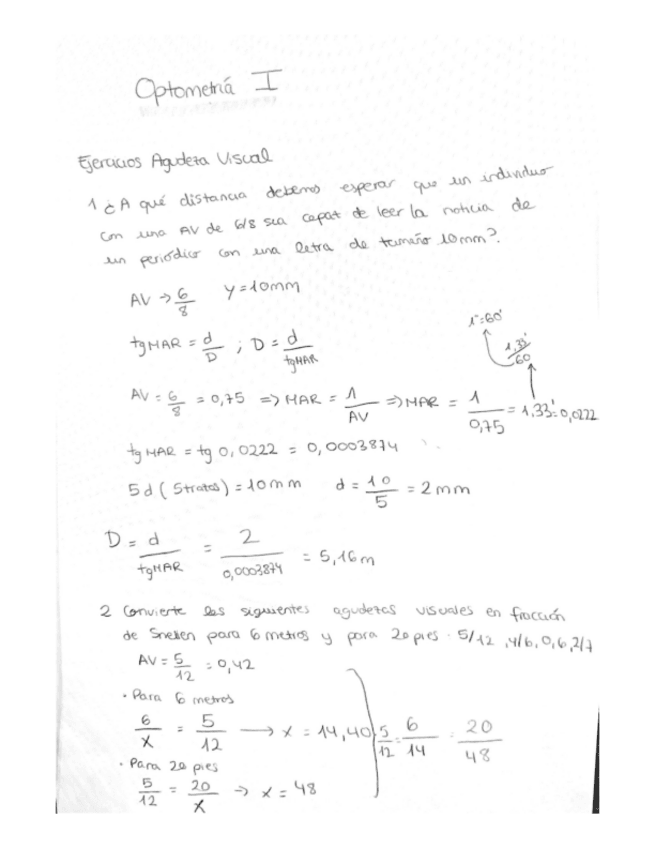 Optometriá I
Ejercicios Agudeza Visual
1 ¿A qué distancia debemos esperar que un individuo
con una AV de 6/8 sea capaz de leer la noticia de
un periódico con una letra de tamaño 10mm?.
AV → 6/8 y=10mm
1º=60'
tgMAR = d/D ; D = d/tgMAR
1,33'/60
AV = 6/8 = 0,75 => MAR = 1/AV => MAR = 1/0,75 = 1,33'=0,0222
tgMAR = tg 0,0222 = 0,0003874
5d (5tratos) = 10mm d = 10/5 = 2mm
D = d/tgMAR = 2/0,0003874 = 5,16m
2 Convierte las siguientes agudezas visuales en fracción
de Snellen para 6 metros y para 20 pies. 5/12, 4/6, 0,6, 2/7
AV = 5/12 = 0,42
· Para 6 metros
6/x = 5/12 → x = 14,40 5/12 = 6/14 = 20/48
· Para 20 pies
5/12 = 20/x → x = 48